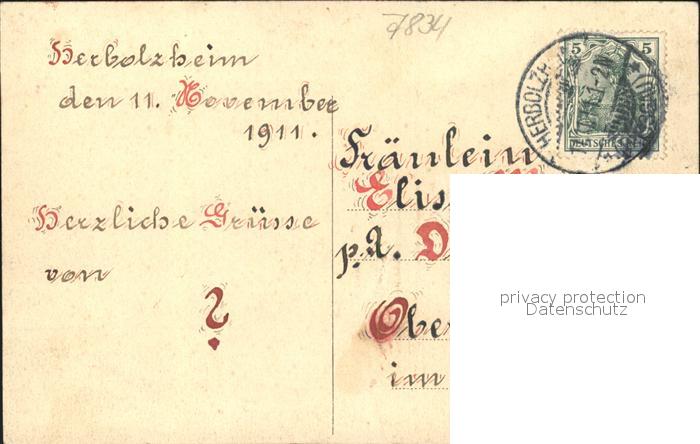 7834
Herbolzheim
den 11. November
1911.
Herzliche Grüsse
von
?
5 5
DEUTSCHES REICH
HERBOLZH
Fräulein
Elis
p. A. D
Ober
im
privacy protection
Datenschutz